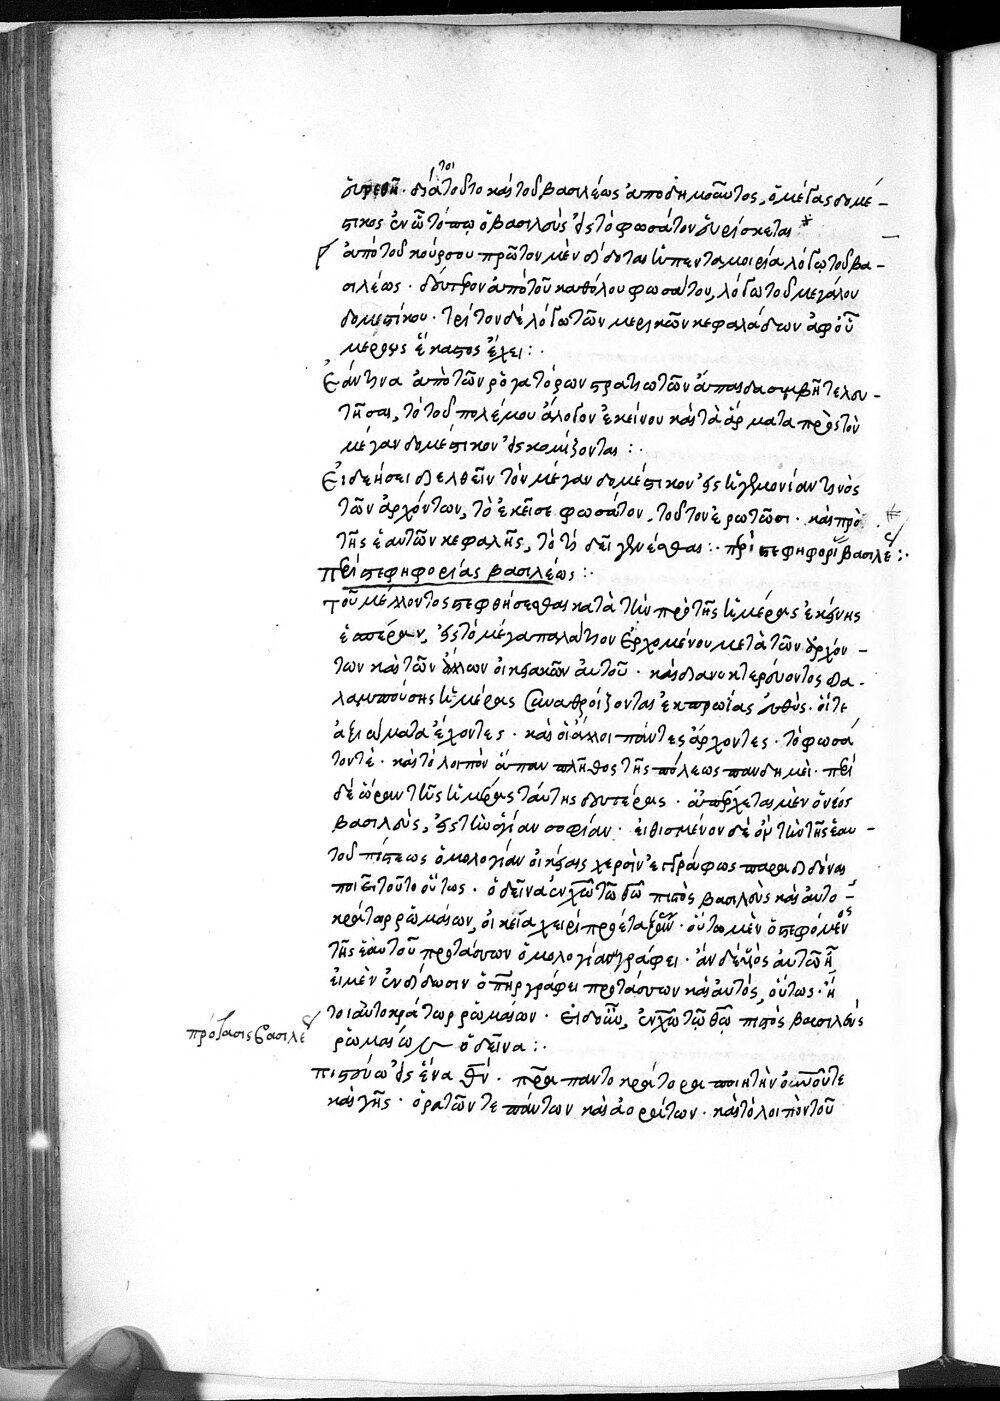 εὑρεθῆ. διάτοι τοῦτο καὶ τοῦ βασιλέως ἀποδημοῦντος, ὁ μέγας δομέ-
στικος ἐν ᾧ τόπῳ ὁ βασιλεὺς εἰς τὸ φωσάτον εὑρίσκεται
ἀπὸ τοῦ κούρσου πρῶτον μὲν δίδοται ἡ πενταμοιρία λόγω τοῦ βα-
σιλέως. δεύτερον ἀπὸ τοῦ καθόλου φωσάτου, λόγω τοῦ μεγάλου
δομεστίκου. τρίτον δὲ λόγω τῶν μερικῶν κεφαλάδων ἀφ' οὗ
μέρους ἕκαστος ἔχει:.
Ἐάν τινα ἀπὸ τῶν ῥογατόρων στρατιωτῶν ἅπασι συμβῆ τελευ-
τῆσαι, τὸ τοῦ πολέμου ἄλογον ἐκείνου καὶ τὰ ἄρματα πρὸς τὸν
μέγαν δομέστικον εἰσκομίζονται:.
Εἰ δεήσει διελθεῖν τὸν μέγαν δομέστικον εἰς ἡγεμονίαν τινὸς
τῶν ἀρχόντων, τὸ ἐκεῖσε φωσάτον, τοῦτον ἐρωτῶσι. καὶ πρὸ
τῆς ἑαυτῶν κεφαλῆς, τὸ τί δεῖ γενέσθαι:. περὶ στεφηφορί βασιλέ:.
Περὶ στεφηφορίας βασιλέως:.
Τοῦ μέλλοντος στεφθήσεσθαι κατὰ τὴν πρὸ τῆς ἡμέρας ἐκείνης
ἑσπέραν, εἰς τὸ μέγα παλάτιον ἐρχομένου μετὰ τῶν ἀρχόν-
των καὶ τῶν ἄλλων οἰκειακῶν αὐτοῦ. καὶ διανυκτερεύοντος δια-
λαμπούσης ἡμέρας συναθροίζονται ἐκ πρωΐας εὐθύς. οἵ τε
ἀξιώματα ἔχοντες. καὶ οἱ ἄλλοι πάντες ἄρχοντες. τὸ φωσά
τον τέ. καὶ τὸ λοιπὸν ἅπαν πλῆθος τῆς πόλεως πανδημεί. περὶ
δὲ ὥραν τῆς ἡμέρας ταύτης δευτέρας. ἀπέρχεται μὲν ὁ νέος
βασιλεὺς, εἰς τὴν ἁγίαν σοφίαν. εἰθισμένον δὲ ὂν τὴν τῆς ἑαυ-
τοῦ πίστεως ὁμολογίαν οἰκείαις χερσὶν ἐγγράφως παραδιδόναι
ποιεῖ τοῦτο οὕτως. ὁ δεῖνα ἐν χῷ τῷ θῷ πιστὸς βασιλεὺς καὶ αὐτο-
κράτωρ ῥωμαίων, οἰκεία χειρὶ προέταξα. οὕτω μὲν ὁ στεφόμενος
τῆς ἑαυτοῦ προτάσσων ὁμολογίαν γράφει. ἂν δὲ υἱὸς αὐτῶ ᾖ
εἰ μὲν ἐνδίδωσιν ὁ πῆρ γράφει προτάσσων καὶ αὐτὸς, οὕτως. ἤ
τοι αὐτοκράτωρ ῥωμαίων. εἰ δ' οὖν, ἐν χῷ τῷ θῷ πιστὸς βασιλεὺς
πρότασις βασιλέ
ῥωμαίων ὁ δεῖνα:.
πιστεύω εἰς ἕνα θν. πρα παντοκράτορα ποιητὴν οὐνοῦ τε
καὶ γῆς. ὁρατῶν τε πάντων καὶ ἀοράτων. καὶ τὸ λοιπὸν τοῦ